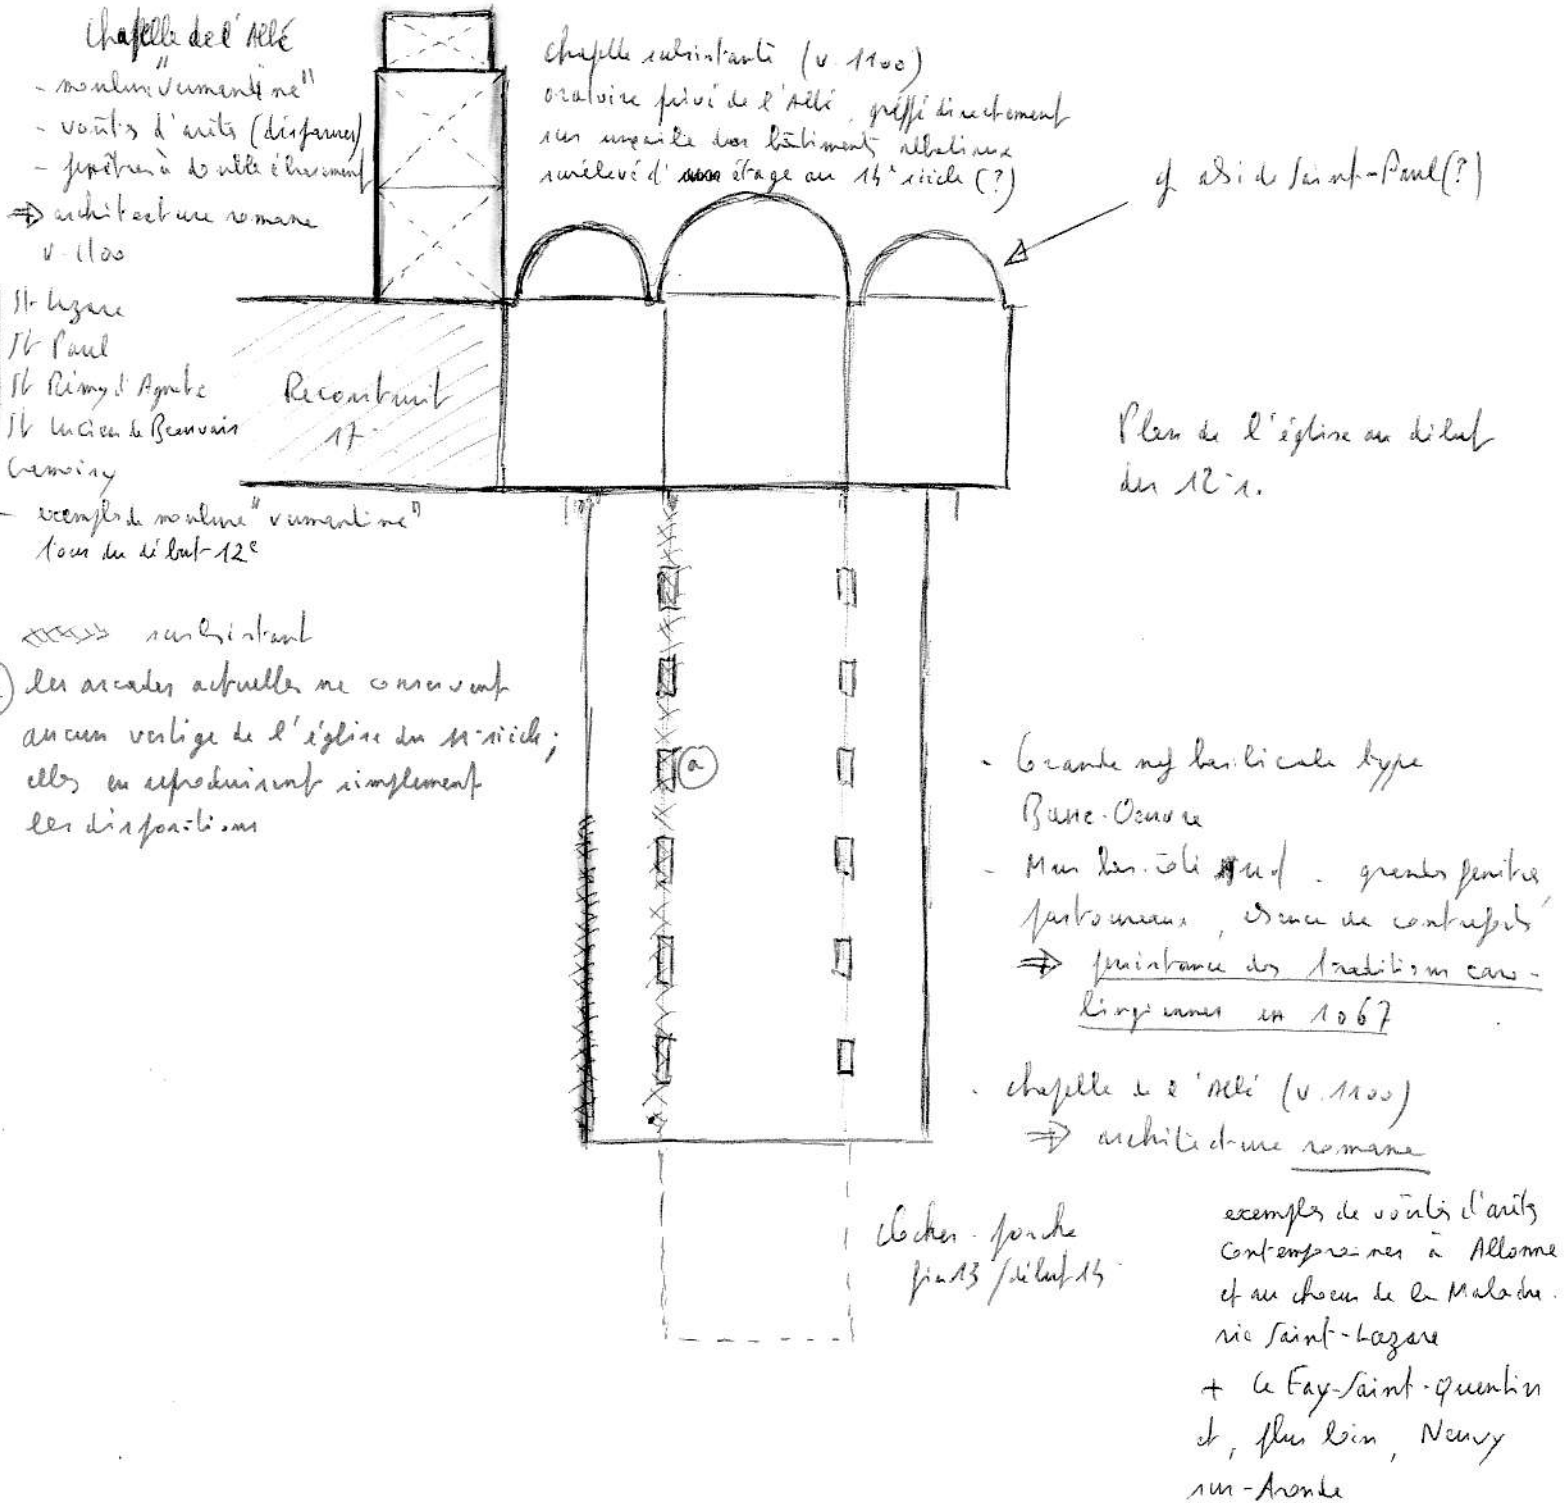 Chapelle de l'Abbé
- moulure "vermandine"
- voûtes d'arêtes (disparues)
- fenêtres à double ébrasement
⇒ architecture romane
v. 1100
St Lazare
St Paul
St Rémy d'Agnetz
St Lucien de Beauvais
- exemples de moulure "vermandine"
tous du début 12e
chapelle subsistante (v. 1100)
oratoire privé de l'Abbé, greffé directement
sur une aile des bâtiments abbatiaux
surélevé d'un étage au siècle (?)
cf abside Saint-Paul (?)
Reconstruit
17
Plan de l'église au début
du 12e s.
subsistant
les arcades actuelles ne conservent
aucun vestige de l'église du 11e siècle ;
elles en reproduisent simplement
les dispositions
a
- Grande nef basilicale type
Basse-Oeuvre
- Mur bas-côté sud . grandes fenêtres,
pastoureaux, absence de contreforts
⇒ persistance des traditions caro-
lingiennes en 1067
- chapelle de l'Abbé (v. 1100)
⇒ architecture romane
clocher-porche
fin 13 / début
exemples de voûtes d'arêtes
contemporaines à Allonne
et au choeur de la Maladre-
rie Saint-Lazare
+ Le Fay-Saint-Quentin
et, plus loin, Neuvy
sur-Aronde